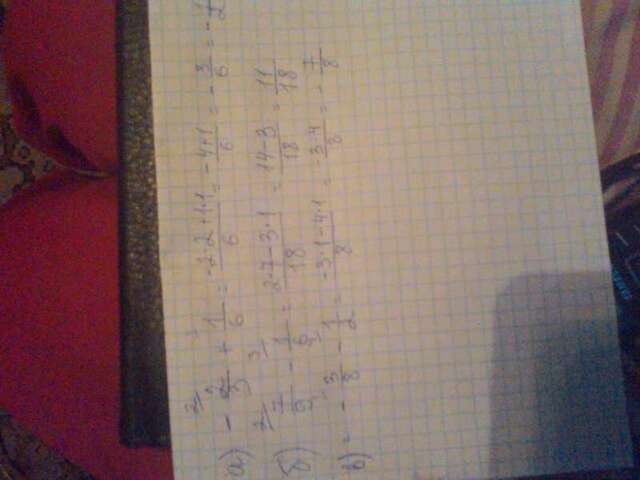 а) - 2/3 + 1/6 = -2·2+1·1/6 = -4+1/6 = - 3/6 = - 1/2
б) 7/9 - 1/6 = 2·7-3·1/18 = 14-3/18 = 11/18
в) = - 3/8 - 1/2 = -3·1-4·1/8 = -3·4/8 = - 7/8